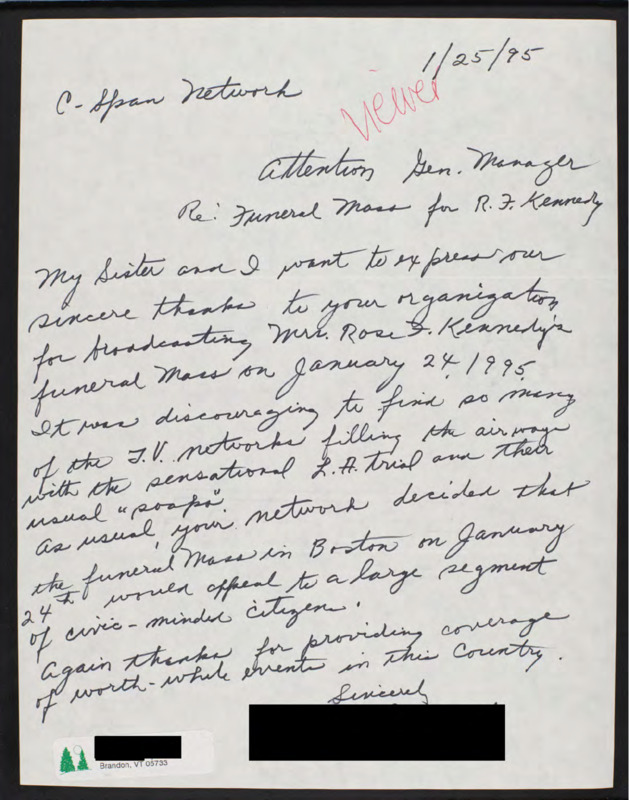 1/25/95
C-Span Network
viewer
Attention Gen. Manager
Re: Funeral Mass for R. F. Kennedy
My Sister and I want to express our
sincere thanks to your organization
for broadcasting Mrs. Rose F. Kennedy's
funeral Mass on January 24, 1995.
It was discouraging to find so many
of the T.V. networks filling the airways
with the sensational L.A. trial and their
usual "soaps".
As usual, your network decided that
the funeral Mass in Boston on January
24th would appeal to a large segment
of civic-minded citizens.
Again thanks for providing coverage
of worth-while events in this Country.
Sincerely
Brandon, VT 05733